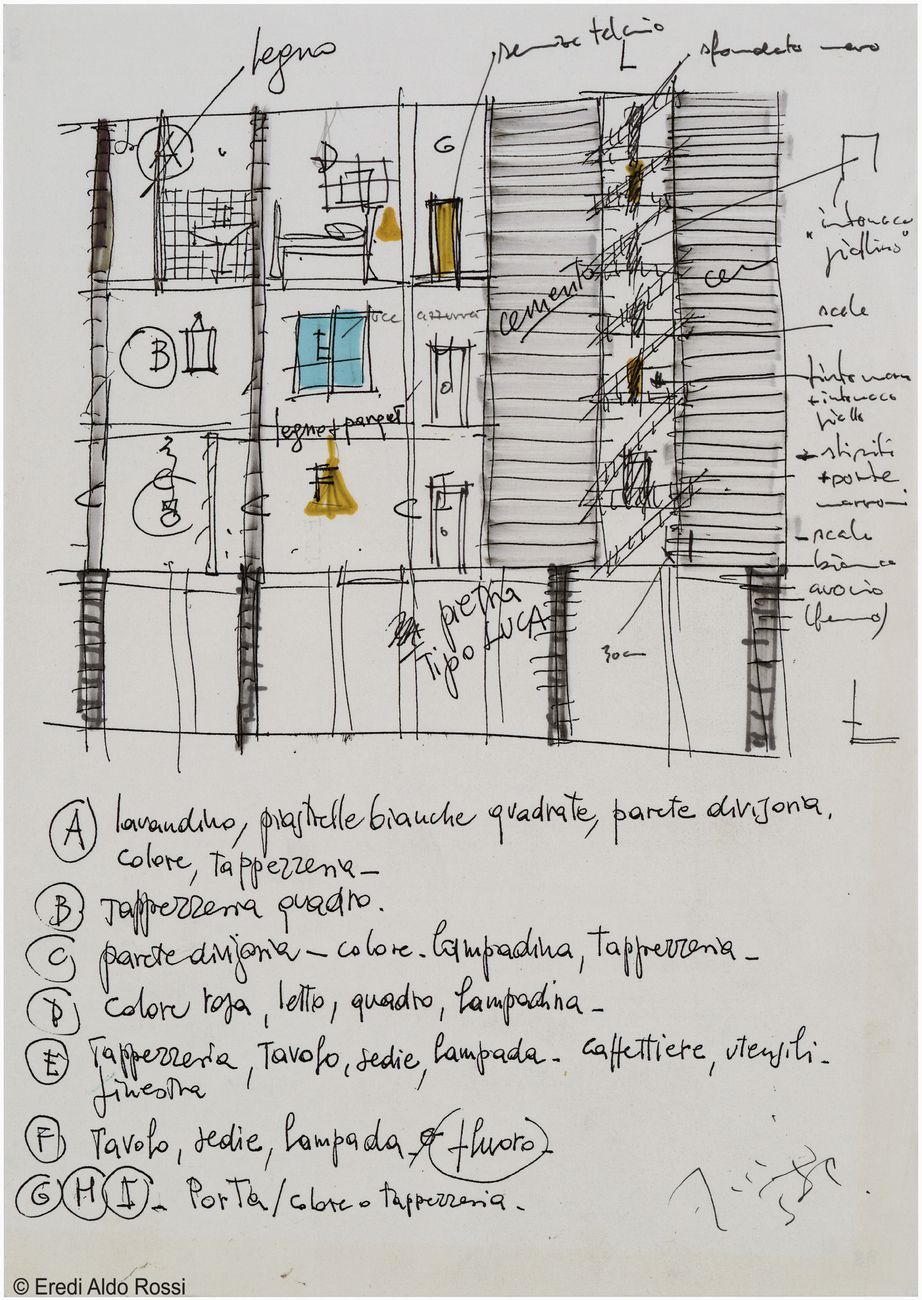 legno
senza telaio
L
sfondato nero
A
D
G
"intonaco
giallino"
cemento
B
E
luce azzurra
scale
legno + parquet
tinta nera
+ intonaco
giallo
C
F
C
stipiti
+ porte
marroni
scale
bianco
avorio
(ferro)
pietra
tipo LUCA
30 cm
A lavandino, piastrelle bianche quadrate, parete divisoria,
colore, tappezzeria_
B Tappezzeria quadro.
C parete divisoria – colore. lampadina, tappezzeria_
D colore rosa, letto, quadro, lampadina_
E Tappezzeria, Tavolo, sedie, lampada_ caffettiere, utensili_
finestra
F Tavolo, sedie, lampada_ (fluoro)_
G H I_ Porta/colore o tappezzeria_
© Eredi Aldo Rossi